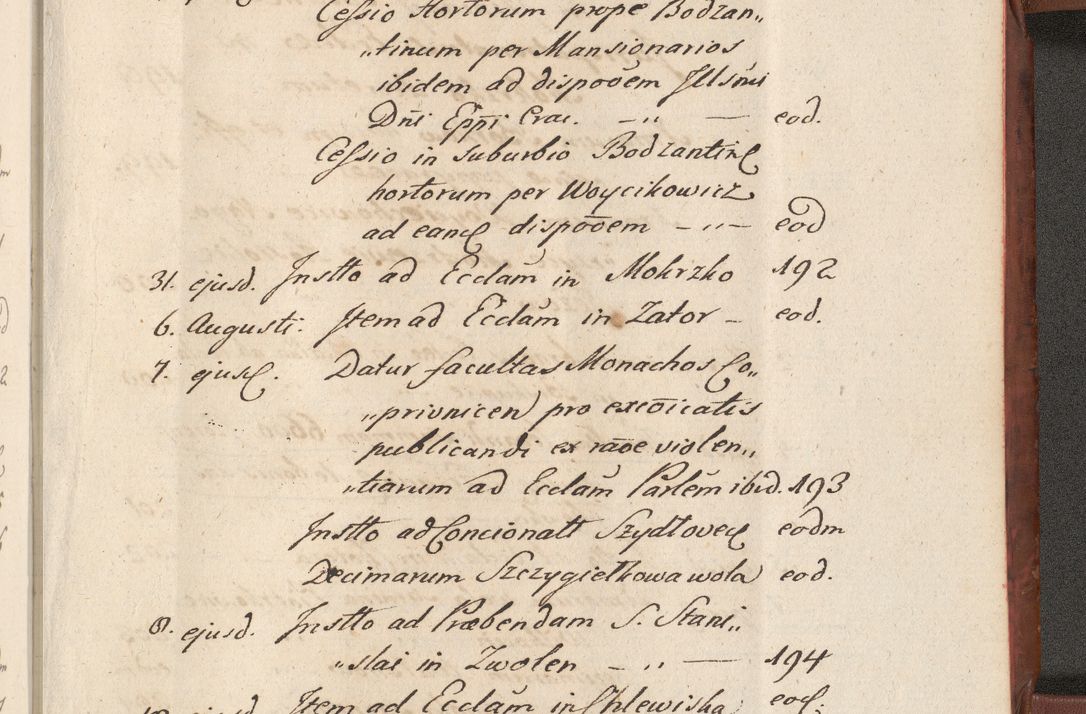 Cessio Hortorum prope Bodzan„
„tinum per Mansionarios
ibidem ad dispoēm Illsmi
Dni Eppi Crac. – „ — eod.
Cessio in suburbio Bodzantin
hortorum per Woycikowicz
ad eand dispoēm – „ – eod
31. ejusd. Instto ad Ecclam in Mokrzko 192
6. Augusti. Item ad Ecclam in Zator – eod.
7. ejusd. Datur facultas Monachos Co„
„privnicen pro excoicatis
publicandi ex raõe violen„
„tiarum ad Ecclam Parlem ibid. 193
Instto ad Concionatt Szydlovec eodm
Decimarum Szczygielkowa wola eod.
8. ejusd. Instto ad Præbendam S. Stani„
„slai in Zwolen – „ — 194
ejusd. Item ad Ecclam in Chlewiska eod.